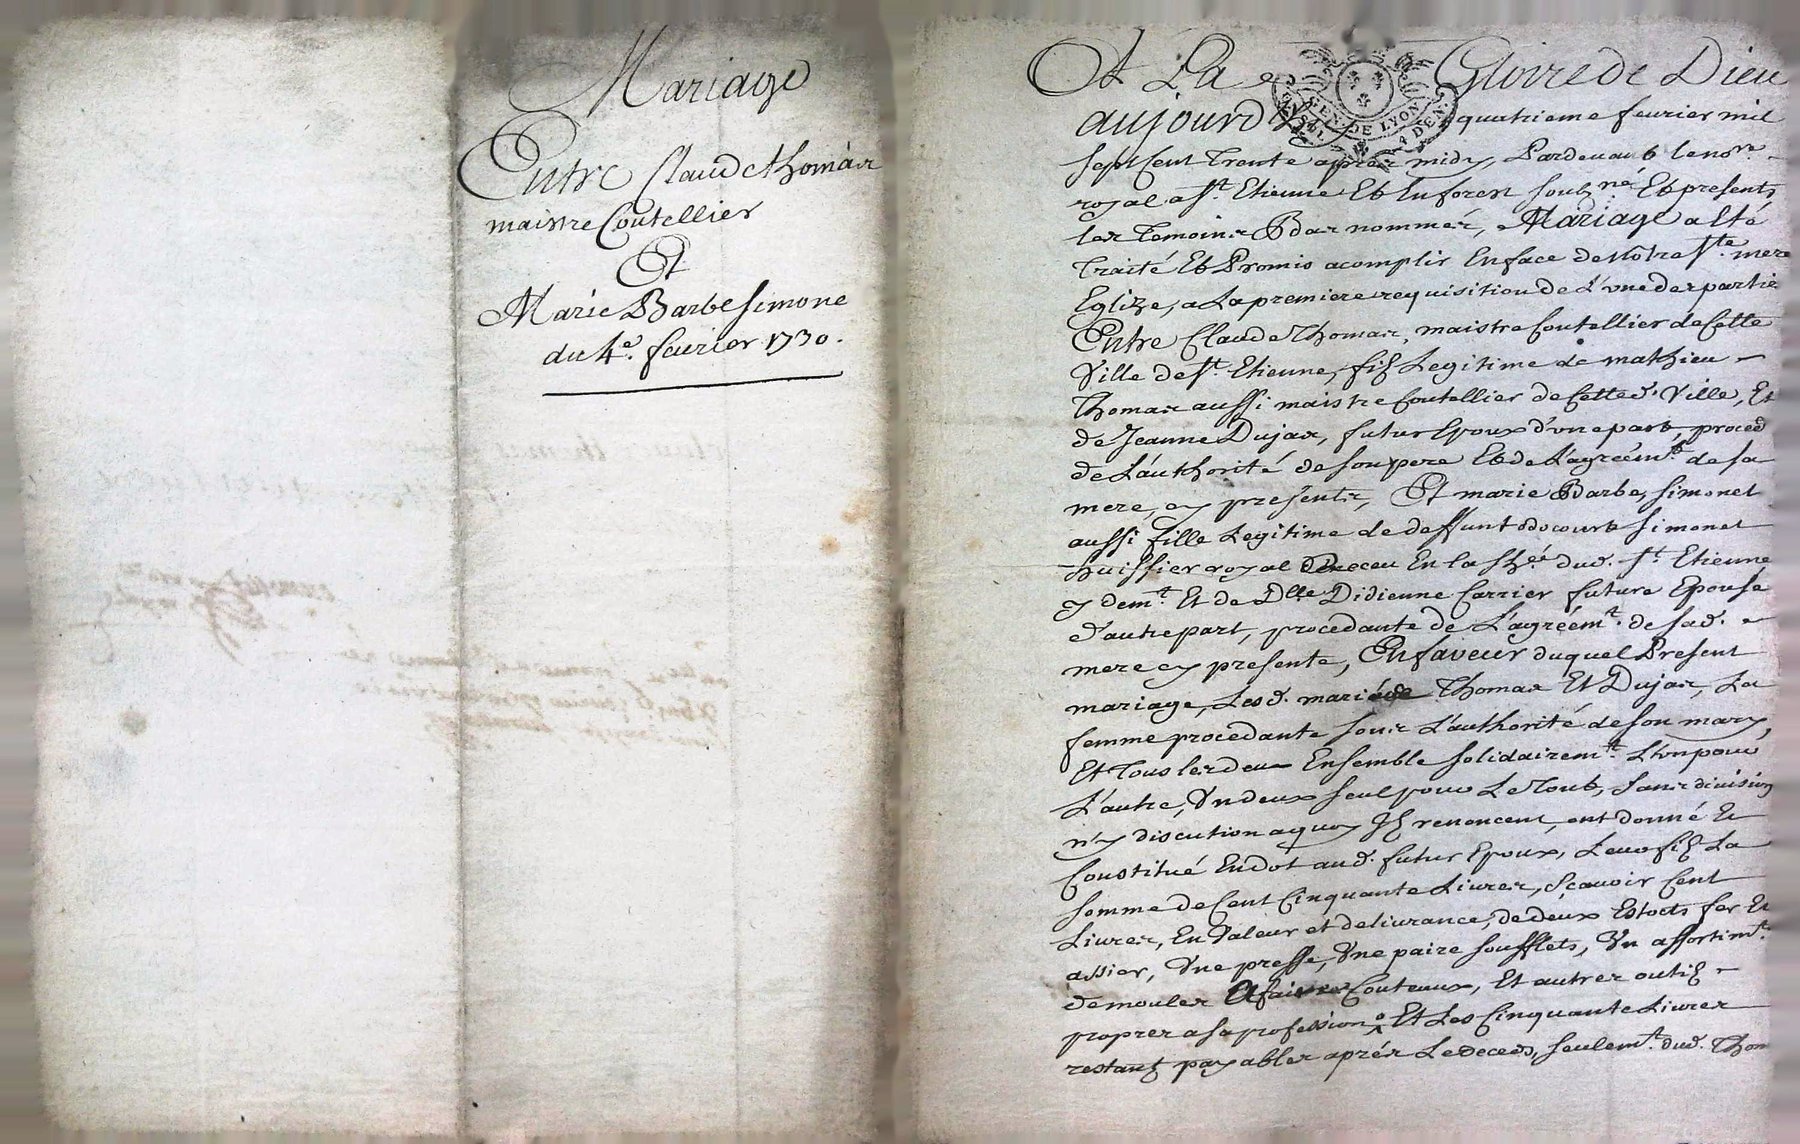 Mariage
Entre Claude thomas
maistre Coutellier
Et
Marie Barbe Simone
du 4e. fevrier 1730.
A La Gloire de Dieu
aujourd quatrieme fevrier mil
sept Cent Trente apres midy, Pardevant le nore.
royal a St. Etienne Et En forest souzné Et presents
les Temoins Bas nommés, Mariage a Eté
Traité Et Promis acomplir En face de Notre Ste. mere
Eglize, a La premiere requisition de L'une des partie
Entre Claude Thomas, maistre Coutellier de Cette
Ville de St. Etienne, filz Legitime de mathieu
Thomas aussi maistre Coutellier de Cette d. Ville, Et
de Jeanne Dujas, futur Epoux d'une part, proced
de L'authorité de son pere Et de L'agréemt. de sa
mere, cy presents, Et marie Barbe Simonet
aussi fille Legitime de deffunt Simonet
huissier royal En la du d. St. Etienne
y demt. Et de Dlle Didienne Carrier future Epouse
d'autre part, procedante de L'agréemt. de sa d.
mere cy presente, En faveur duquel Present
mariage, Les d. mariés Thomas Et Dujas, La
femme procedante sous L'authorité de son mary,
Et Tous les deux Ensemble solidairemt. L'un pour
L'autre, Un deux seul pour Le Tout, sans division
n'y discution a quoy Ilz renoncent, ont donné Et
Constitué En dot au d. futur Epoux, Leur filz La
somme de Cent Cinquante Livres, Sçavoir Cent
Livres, En Valeur et delivrance, de deux Estocts fer Et
assier, Une presse, Une paire soufflets, Un assortimt.
de moules A faire Couteaux, Et autres outilz
propres a sa profession Et Les Cinquante Livres
restantz payables aprés Le deceds, seulemt. du d. Thom